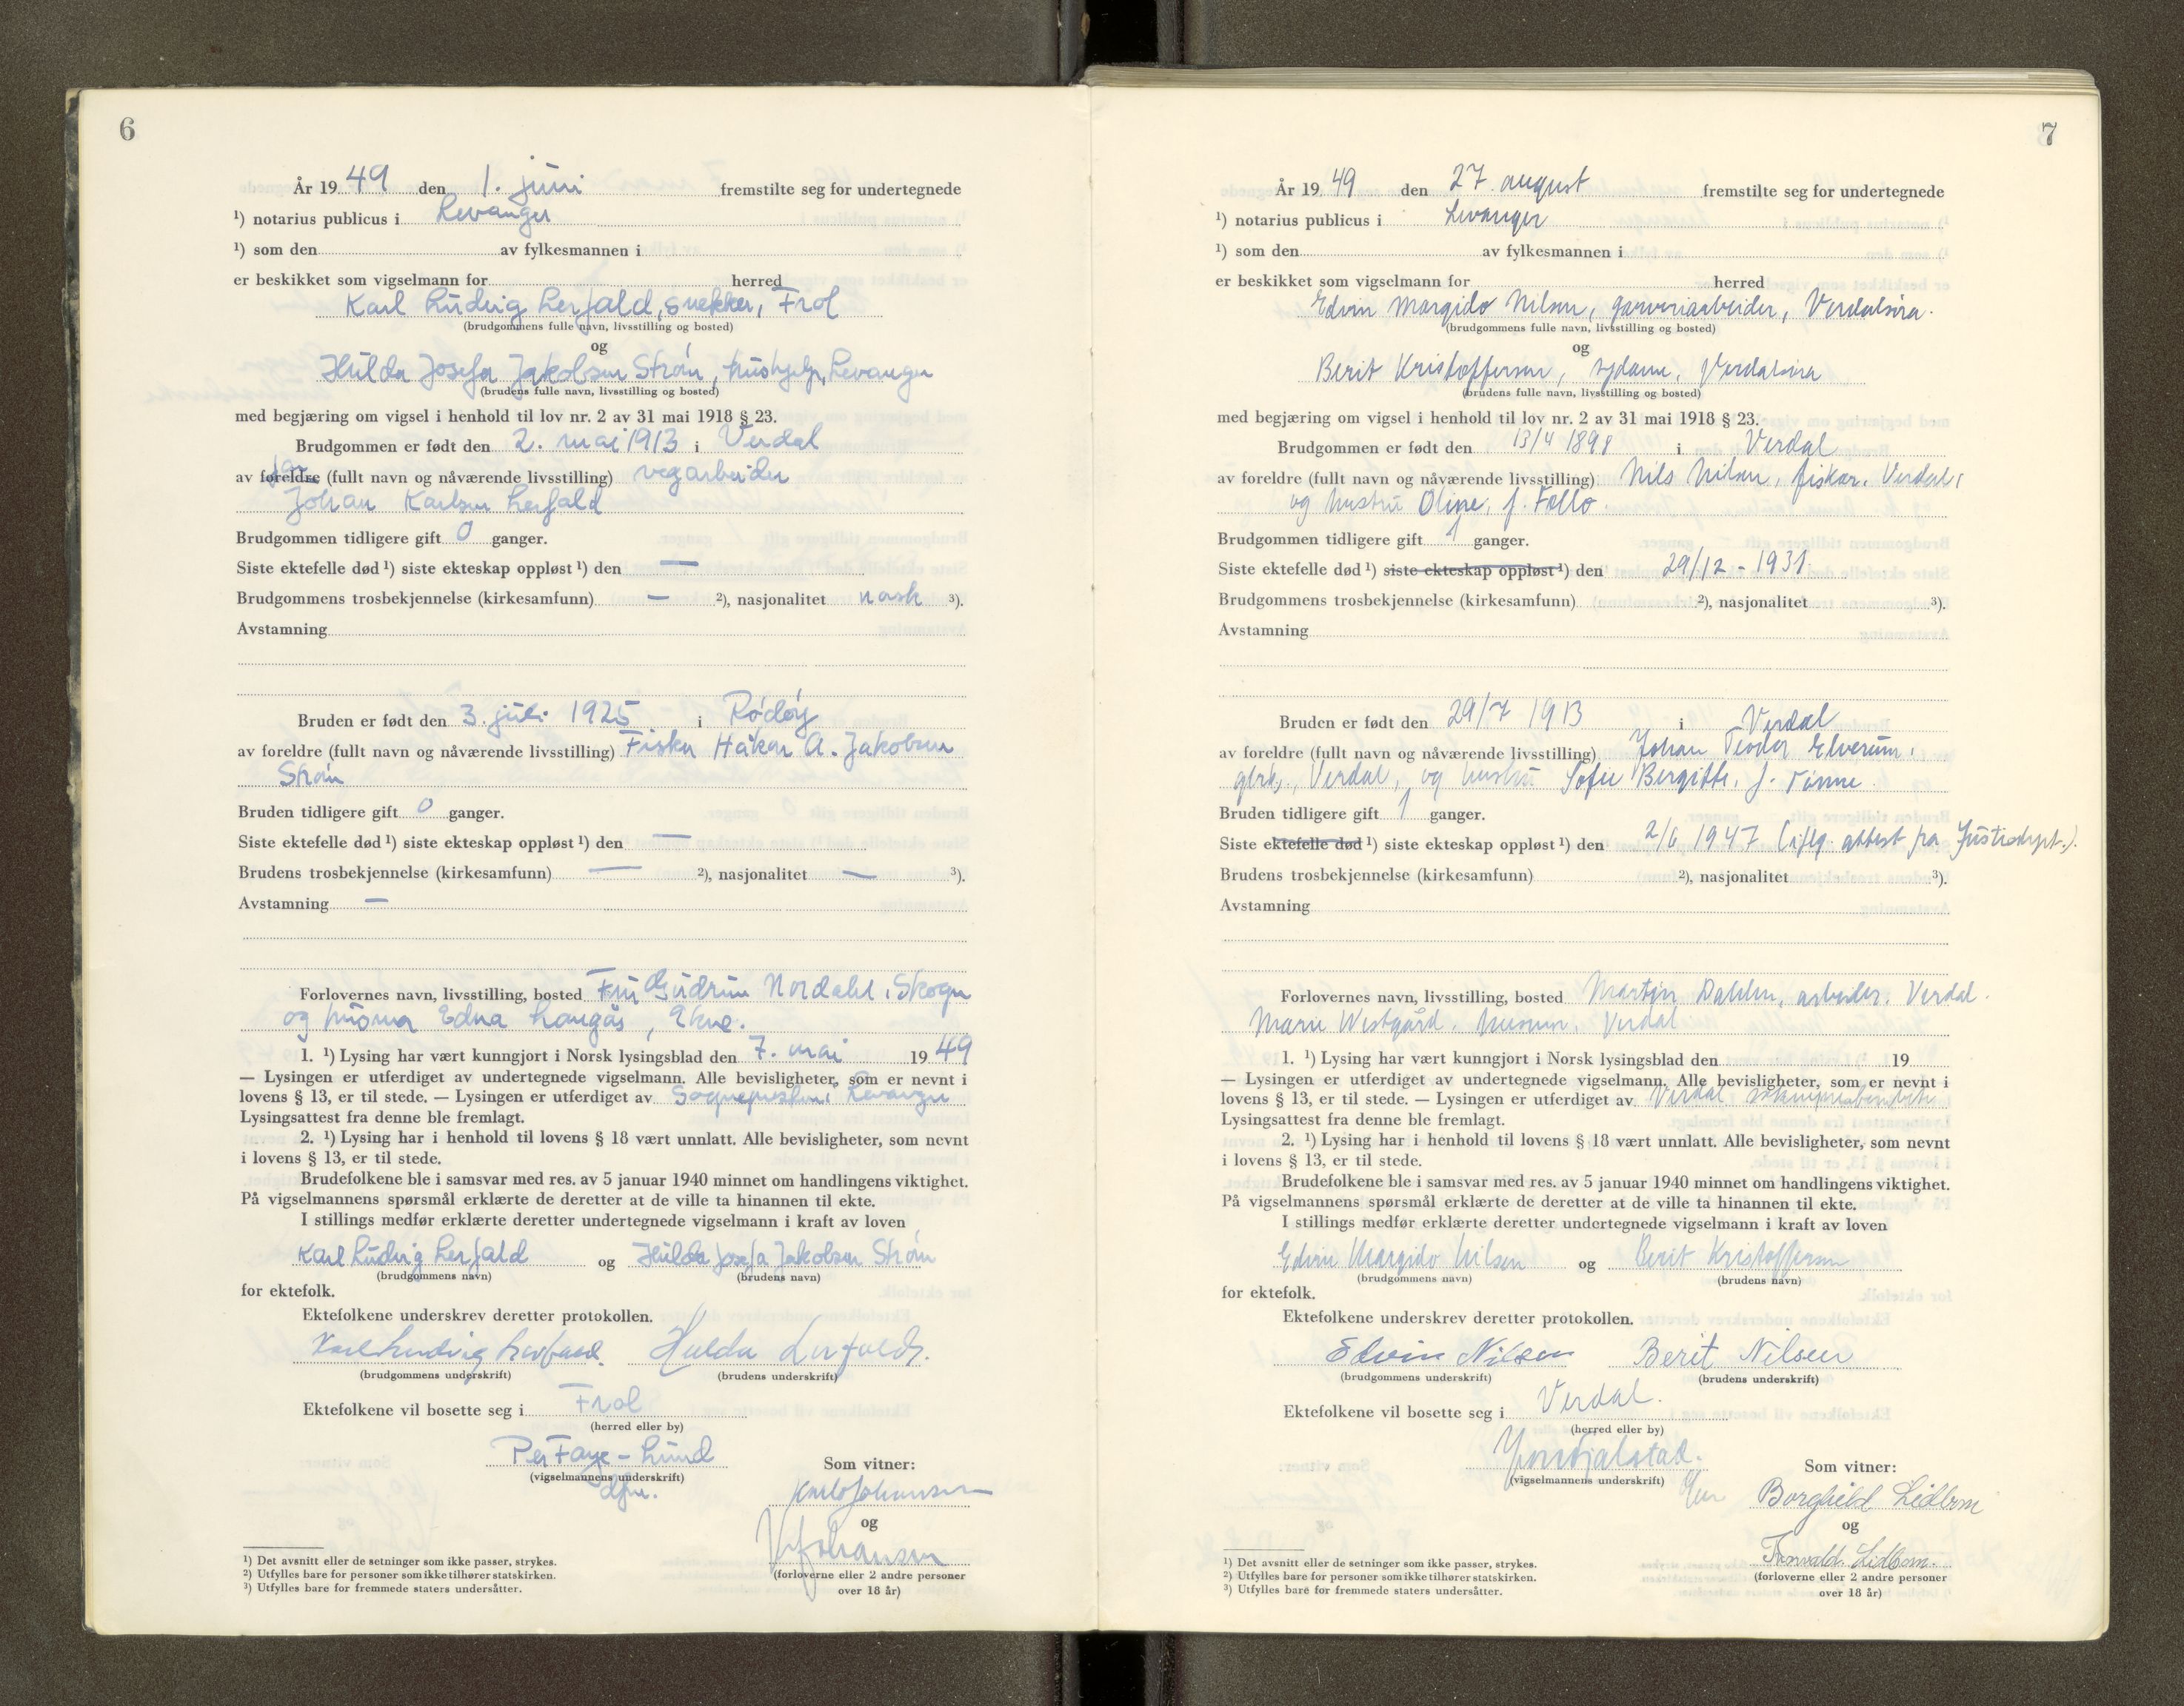 6
År 19 49 den 1. juni fremstilte seg for undertegnede
¹) notarius publicus i Levanger
¹) som den av fylkesmannen i
er beskikket som vigselmann for herred
Karl Ludvig Lerfald, snekker, Frol
(brudgommens fulle navn, livsstilling og bosted)
og
Hulda Josefa Jakobsen Strøm, hushjelp, Levanger
(brudens fulle navn, livsstilling og bosted)
med begjæring om vigsel i henhold til lov nr. 2 av 31 mai 1918 § 23.
Brudgommen er født den 2. mai 1913 i Verdal
av foreldre (fullt navn og nåværende livsstilling) vegarbeider
Johan Karlsen Lerfald
Brudgommen tidligere gift 0 ganger.
Siste ektefelle død ¹) siste ekteskap oppløst ¹) den —
Brudgommens trosbekjennelse (kirkesamfunn) — ²), nasjonalitet norsk ³).
Avstamning
Bruden er født den 3. juli 1925 i Rødøy
av foreldre (fullt navn og nåværende livsstilling) Fisker Håkon A. Jakobsen
Strøm
Bruden tidligere gift 0 ganger.
Siste ektefelle død ¹) siste ekteskap oppløst ¹) den —
Brudens trosbekjennelse (kirkesamfunn) — ²), nasjonalitet — ³).
Avstamning —
Forlovernes navn, livsstilling, bosted Fru Gudrun Nordahl, Skogn
og husmor Edna Langås, Ekne.
1. ¹) Lysing har vært kunngjort i Norsk lysingsblad den 7. mai 19 49
— Lysingen er utferdiget av undertegnede vigselmann. Alle bevisligheter, som er nevnt i
lovens § 13, er til stede. — Lysingen er utferdiget av Sognepresten i Levanger
Lysingsattest fra denne ble fremlagt.
2. ¹) Lysing har i henhold til lovens § 18 vært unnlatt. Alle bevisligheter, som nevnt
i lovens § 13, er til stede.
Brudefolkene ble i samsvar med res. av 5 januar 1940 minnet om handlingens viktighet.
På vigselmannens spørsmål erklærte de deretter at de ville ta hinannen til ekte.
I stillings medfør erklærte deretter undertegnede vigselmann i kraft av loven
Karl Ludvig Lerfald og Hulda Josefa Jakobsen Strøm
(brudgommens navn) (brudens navn)
for ektefolk.
Ektefolkene underskrev deretter protokollen.
Karl Ludvig Lerfald. Hulda Lerfald.
(brudgommens underskrift) (brudens underskrift)
Ektefolkene vil bosette seg i Frol
(herred eller by)
Per Faye-Lund
(vigselmannens underskrift)
dfm.
Som vitner:
Karl Johansen
og
Johansen
(forloverne eller 2 andre personer
over 18 år)
¹) Det avsnitt eller de setninger som ikke passer, strykes.
²) Utfylles bare for personer som ikke tilhører statskirken.
³) Utfylles bare for fremmede staters undersåtter.
7
År 19 49 den 27. august fremstilte seg for undertegnede
¹) notarius publicus i Levanger
¹) som den av fylkesmannen i
er beskikket som vigselmann for herred
Edvin Margido Nilsen, garveriarbeider, Verdalsøra.
(brudgommens fulle navn, livsstilling og bosted)
og
Berit Kristoffersen, sydame, Verdalsøra
(brudens fulle navn, livsstilling og bosted)
med begjæring om vigsel i henhold til lov nr. 2 av 31 mai 1918 § 23.
Brudgommen er født den 13/4 1898 i Verdal
av foreldre (fullt navn og nåværende livsstilling) Nils Nilsen, fisker, Verdal,
og hustru Oline, f. Follo.
Brudgommen tidligere gift 1 ganger.
Siste ektefelle død ¹) siste ekteskap oppløst ¹) den 29/12 - 1931
Brudgommens trosbekjennelse (kirkesamfunn) ²), nasjonalitet ³).
Avstamning
Bruden er født den 29/7 1913 i Verdal
av foreldre (fullt navn og nåværende livsstilling) Johan Teodor Elverum,
grbr., Verdal, og hustru Sofie Bergitte, f. Tinne.
Bruden tidligere gift 1 ganger.
Siste ektefelle død ¹) siste ekteskap oppløst ¹) den 2/6 1947 (iflg. attest fra Justisdept.).
Brudens trosbekjennelse (kirkesamfunn) ²), nasjonalitet ³).
Avstamning
Forlovernes navn, livsstilling, bosted Martin Dahlen, arbeider, Verdal.
Marie Westgård, husmor, Verdal
1. ¹) Lysing har vært kunngjort i Norsk lysingsblad den 19
— Lysingen er utferdiget av undertegnede vigselmann. Alle bevisligheter, som er nevnt i
lovens § 13, er til stede. — Lysingen er utferdiget av Verdal sokneprestembete
Lysingsattest fra denne ble fremlagt.
2. ¹) Lysing har i henhold til lovens § 18 vært unnlatt. Alle bevisligheter, som nevnt
i lovens § 13, er til stede.
Brudefolkene ble i samsvar med res. av 5 januar 1940 minnet om handlingens viktighet.
På vigselmannens spørsmål erklærte de deretter at de ville ta hinannen til ekte.
I stillings medfør erklærte deretter undertegnede vigselmann i kraft av loven
Edvin Margido Nilsen og Berit Kristoffersen
(brudgommens navn) (brudens navn)
for ektefolk.
Ektefolkene underskrev deretter protokollen.
Edvin Nilsen Berit Nilsen
(brudgommens underskrift) (brudens underskrift)
Ektefolkene vil bosette seg i Verdal.
(herred eller by)
(vigselmannens underskrift)
Som vitner:
Borghild Lidbom
og
Torvald Lidbom.
(forloverne eller 2 andre personer
over 18 år)
¹) Det avsnitt eller de setninger som ikke passer, strykes.
²) Utfylles bare for personer som ikke tilhører statskirken.
³) Utfylles bare for fremmede staters undersåtter.